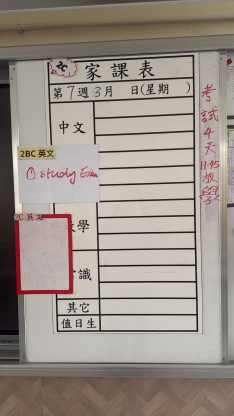 家課表
第7週3月 日(星期 )
中文
2BC英文
① Study Exam
2C英文
數學
常識
其它
值日生
考試4天11:45放學